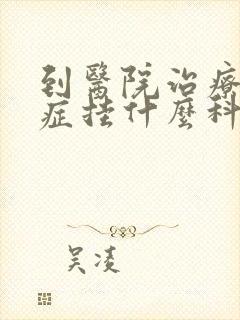 到醫院治療
症挂什麼科
吴凌